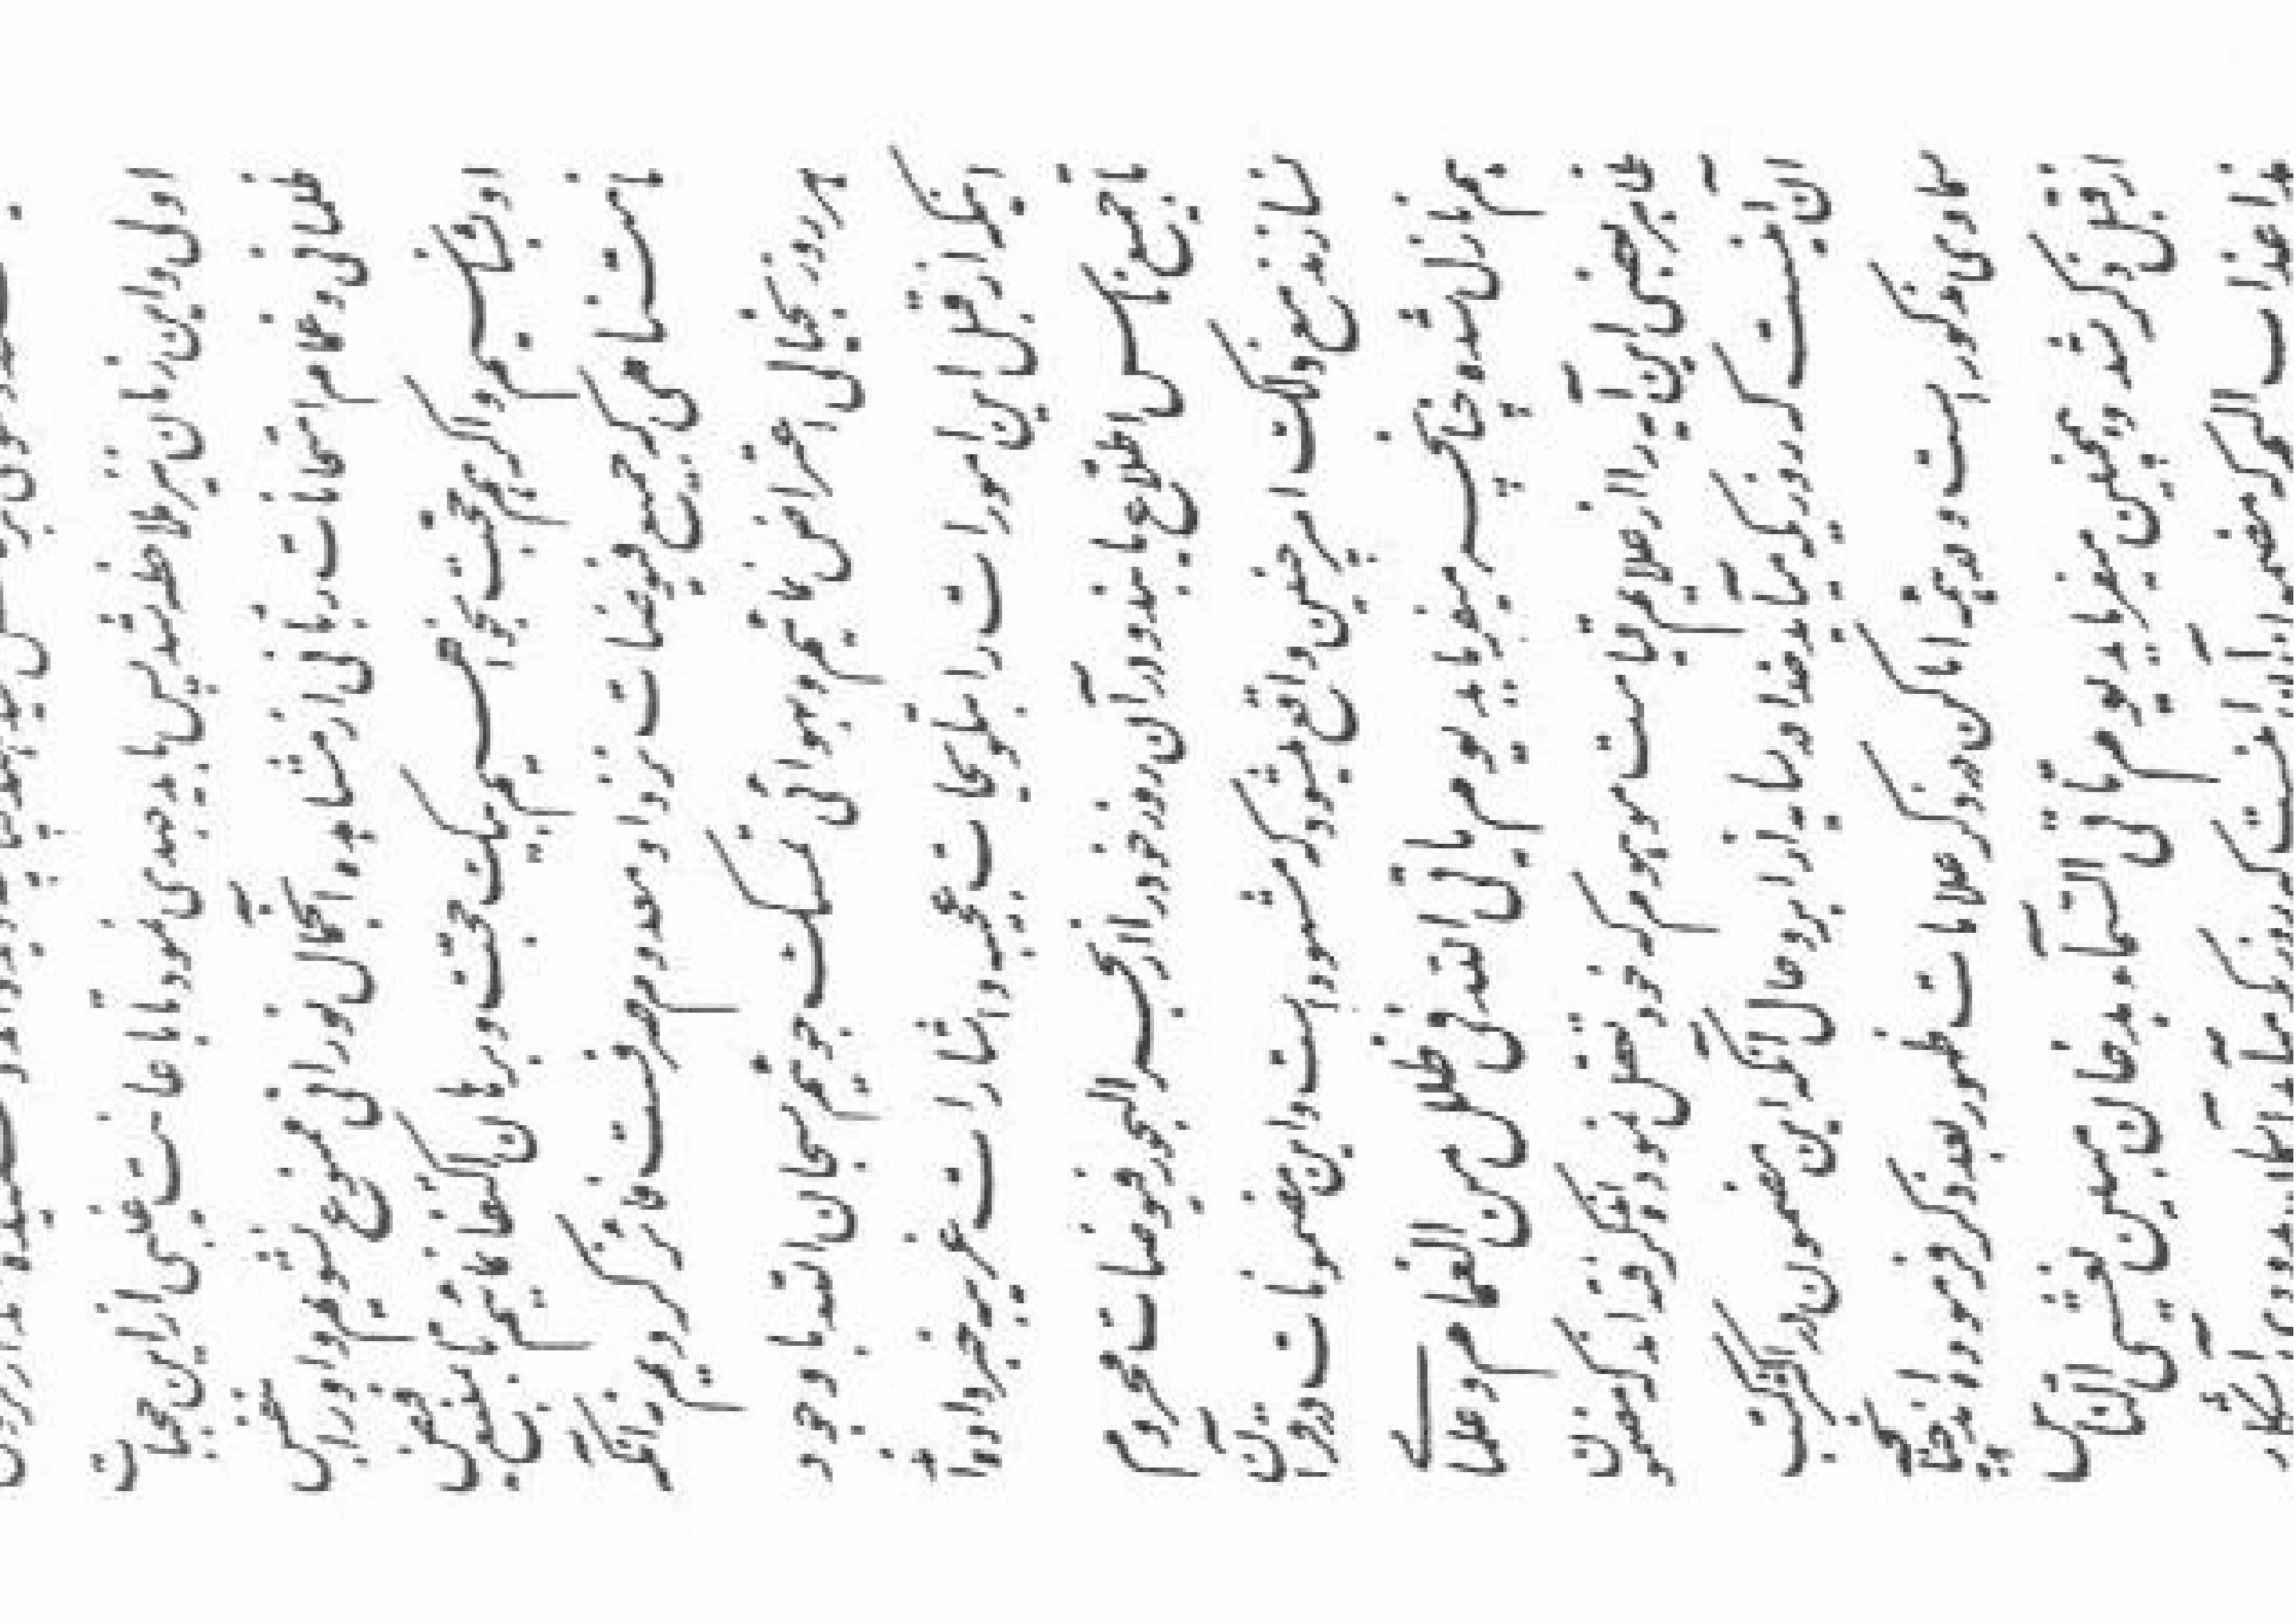 اولی و این زمان نیز ملاحظه شد پس باید جهدی نمود تا باعانت غیبی ازین حجبات
ظلمانی و غمام امتحانات ربانی از مشاهده آن جمال نورانی ممنوع نشویم و او را بنفس
او بشناسیم و اگر هم حجت بخواهیم بیک حجت و برهان اکتفا نمائیم تا بمنبع فیض
نامتناهی که جمیع فیوضات نزد او معدوم صرفست فائز گردیم نه آنکه
هر روز بخیالی اعتراض نمائیم و بهوائی تمسک جوئیم سبحان الله با وجود
اینکه از قبل این امورات را بتلویحات عجیبه و اشارات غریبه خبر داده‌اند
تا جمیع ناس اطلاع یابند و در آن روز خود را از بحر البحور فیوضات محروم
نسازند مع ذلک امر چنین واقع میشود که مشهود است و این مضمونات در قرآن
هم نازل شده چنانچه میفرماید یوم یأتی الله فی ظلل من الغمام و علمای
ظاهر بعضی این آیه را از علائم قیامت موهوم که خود تعقل نموده‌اند گرفته‌اند که مضمون
آن اینست که روزیکه میآید خدا در سایه از ابر و حال آنکه این مضمون در اکثر کتب
سماوی مذکور است و در همه اماکن در ذکر علامات ظهور بعد ذکر فرموده‌اند چنانچه
از قبل ذکر شد و همچنین میفرماید یوم تأتی السّماء بدخان مبین یغشی النّاس
هذا عذاب الیم که مضمون آن اینست که روزیکه میآید آسمان بدودی آشکار